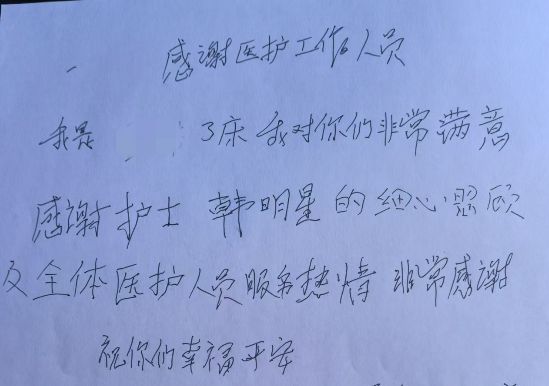 感谢医护工作人员
我是 3床 我对你们非常满意
感谢护士 韩明星的细心照顾
及全体医护人员服务热情 非常感谢
祝你们幸福平安